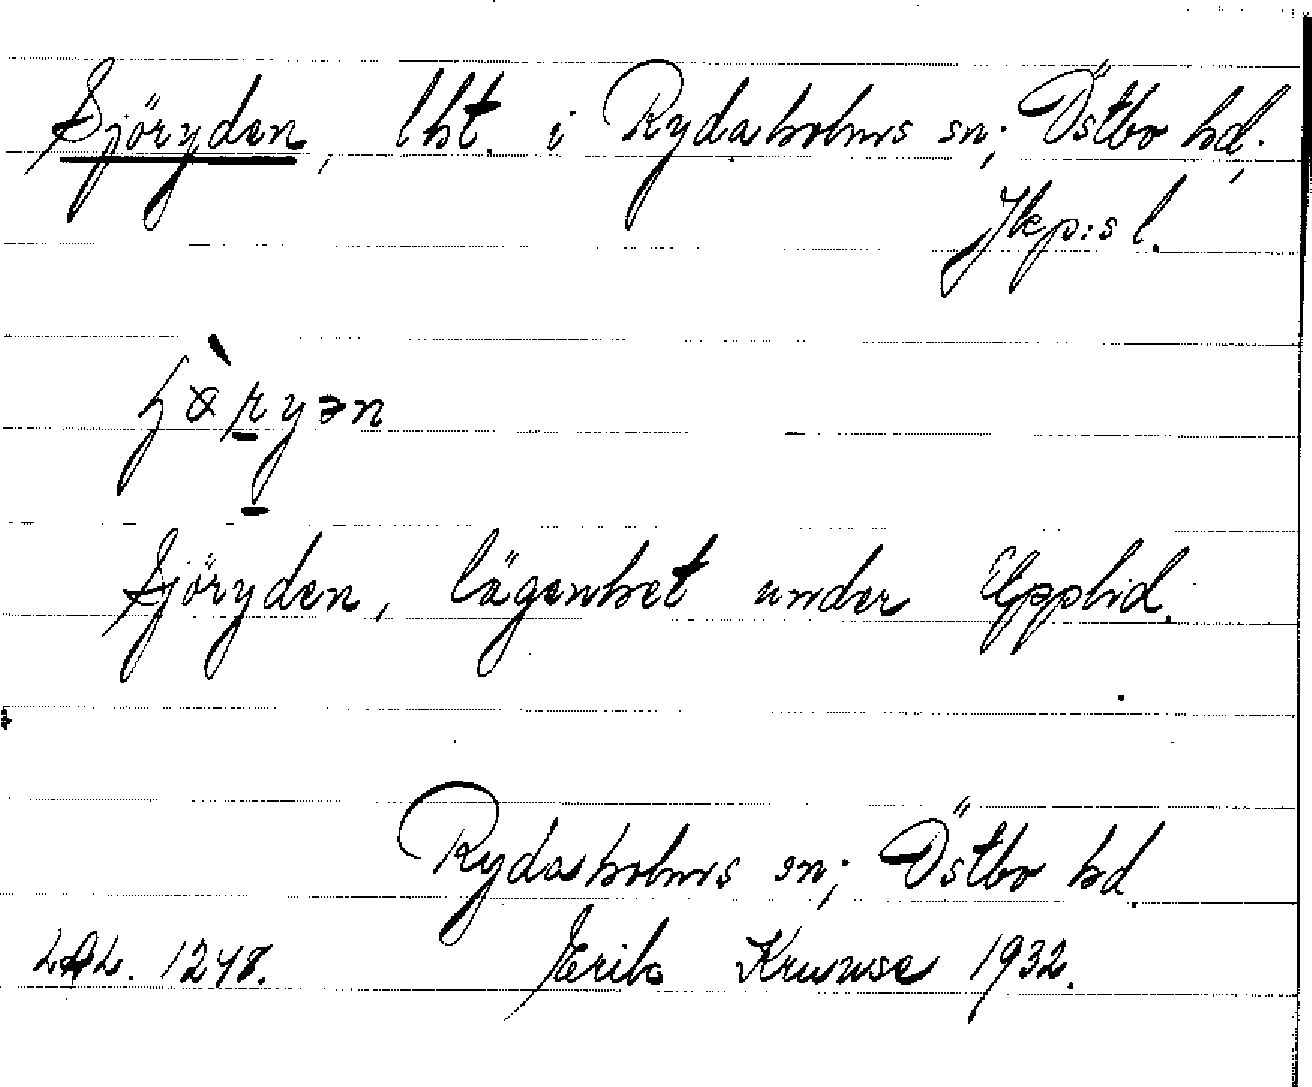 Sjöryden, lht. i Rydaholms sn; Östbo hd;
Jkp:s l.
Sjöryden, lägenhet under Epplid.
Rydaholms sn; Östbo hd.
1248. Erik Krunse 1932.